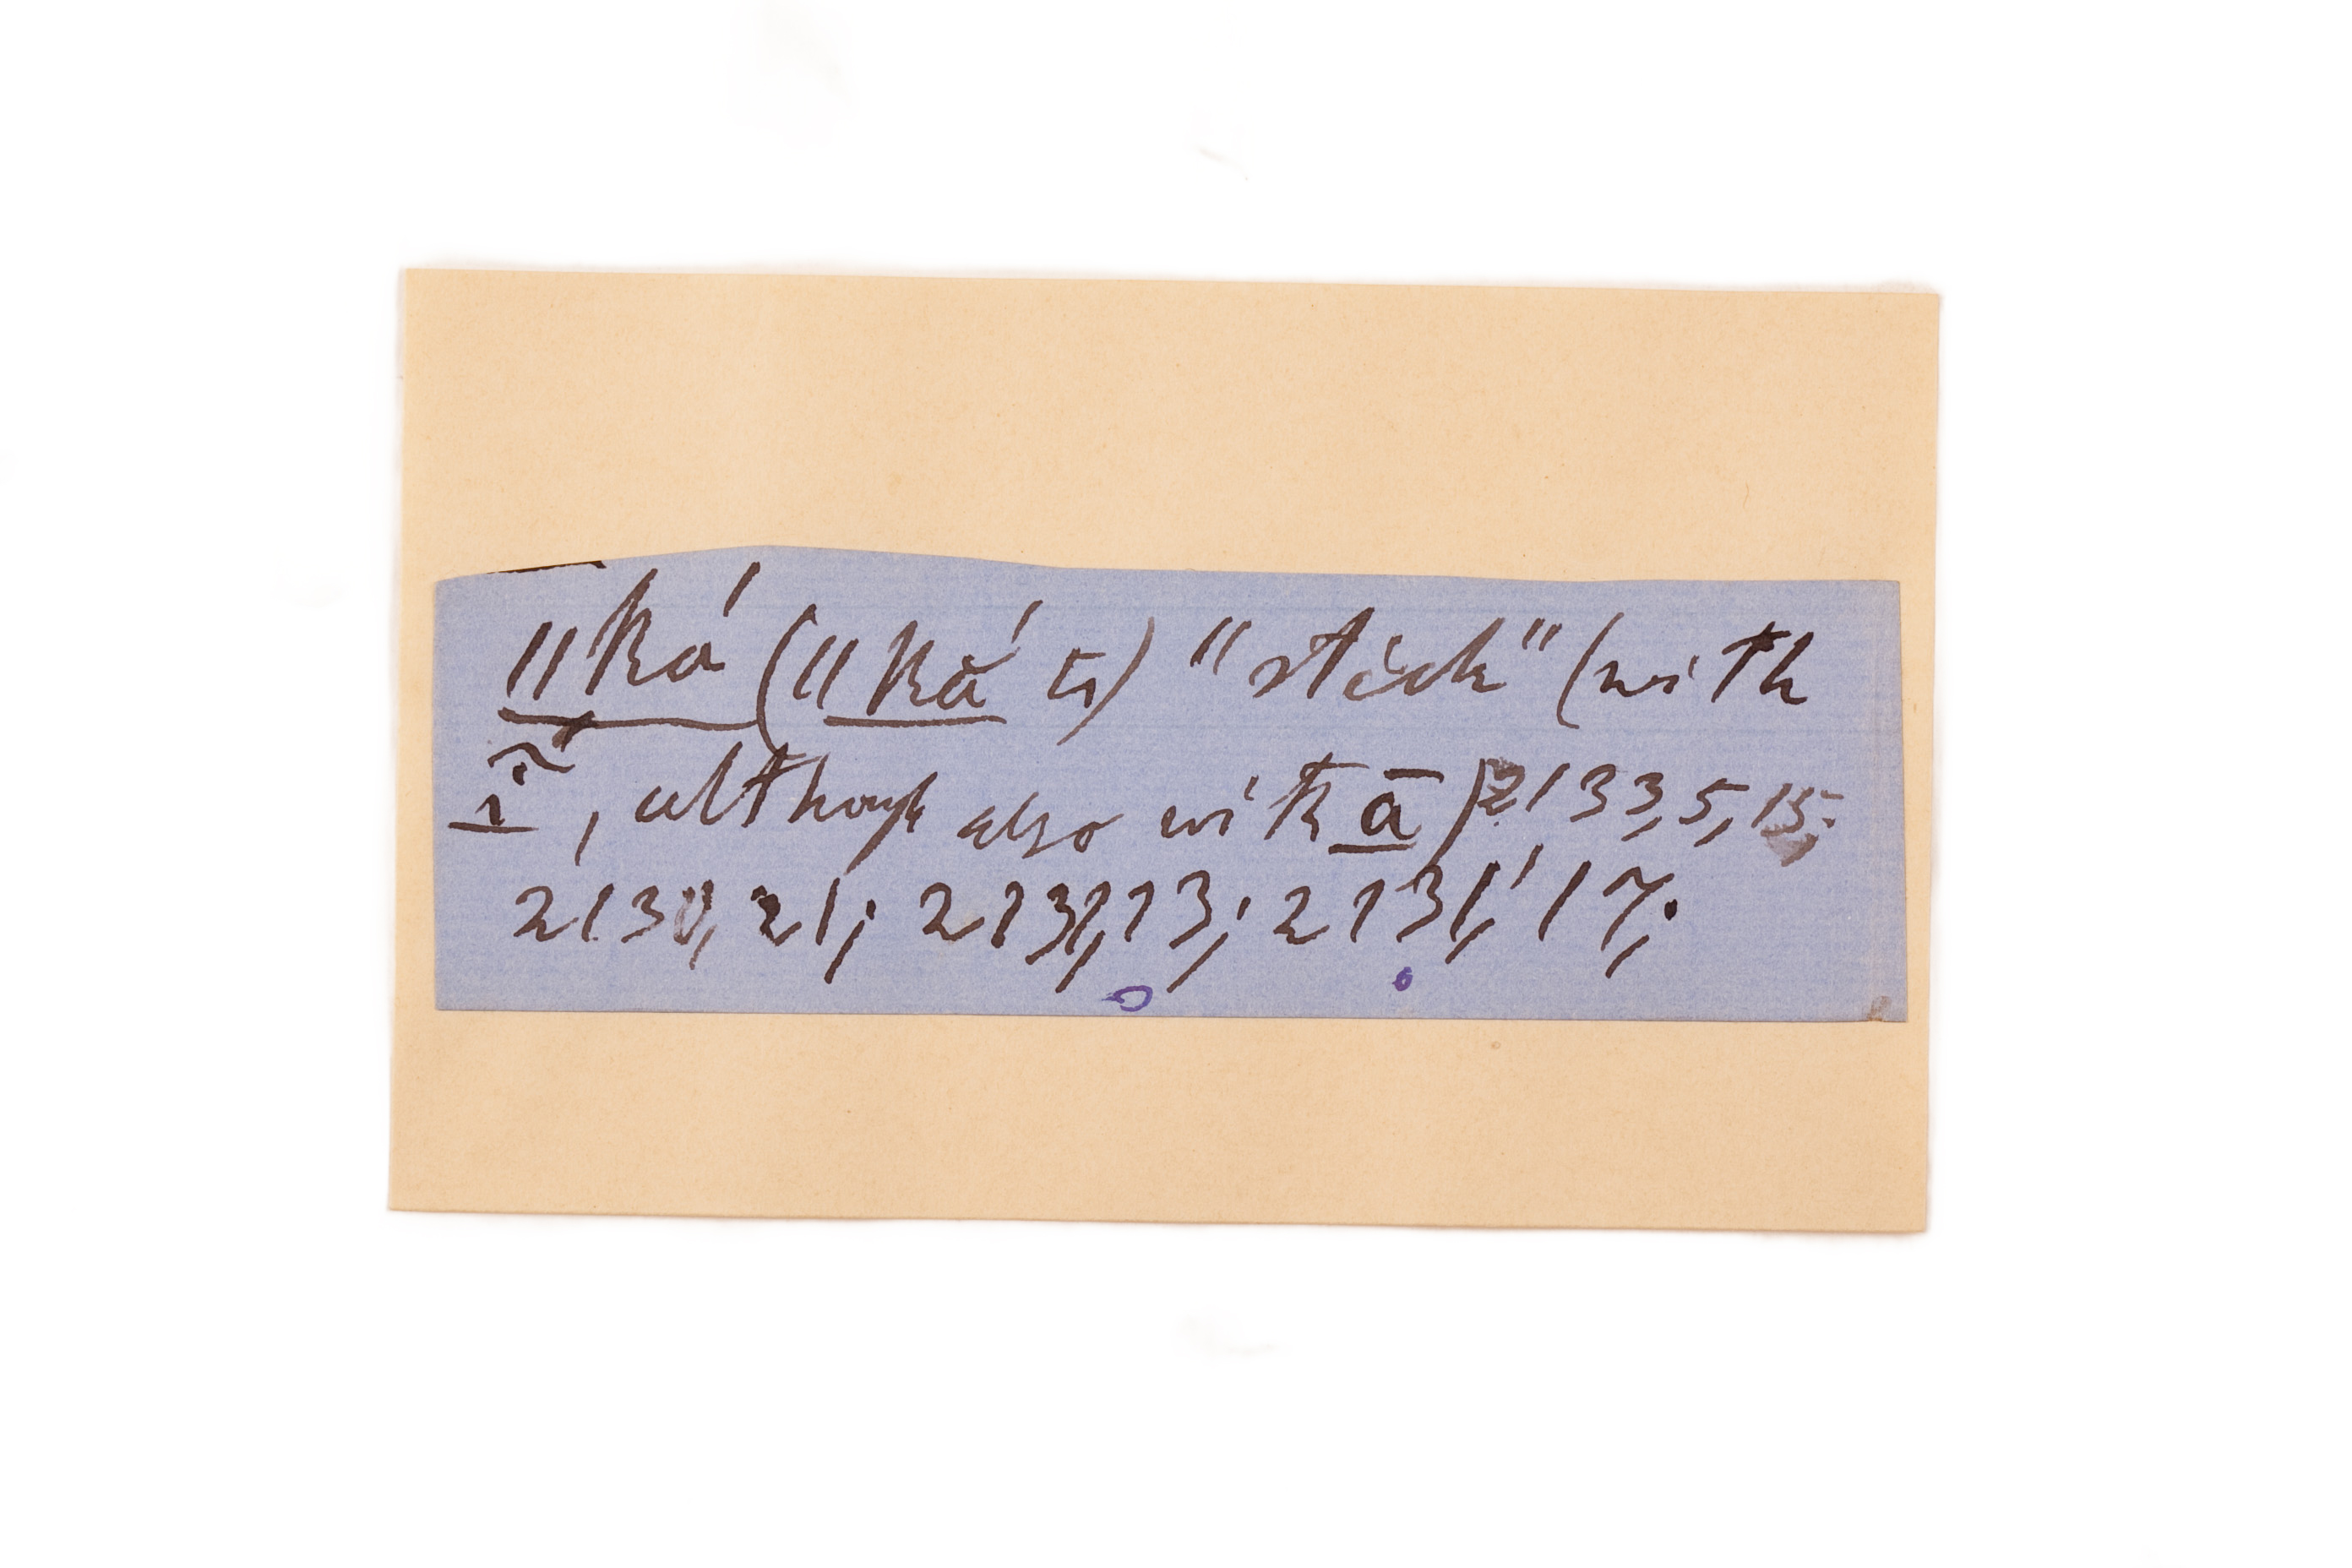 ǁká (ǁkā́ ʦ) "stick" (with
ĩ, although also with ā) 2133, 5, 15;
2130, 21; 2131, 13; 2131', 17;